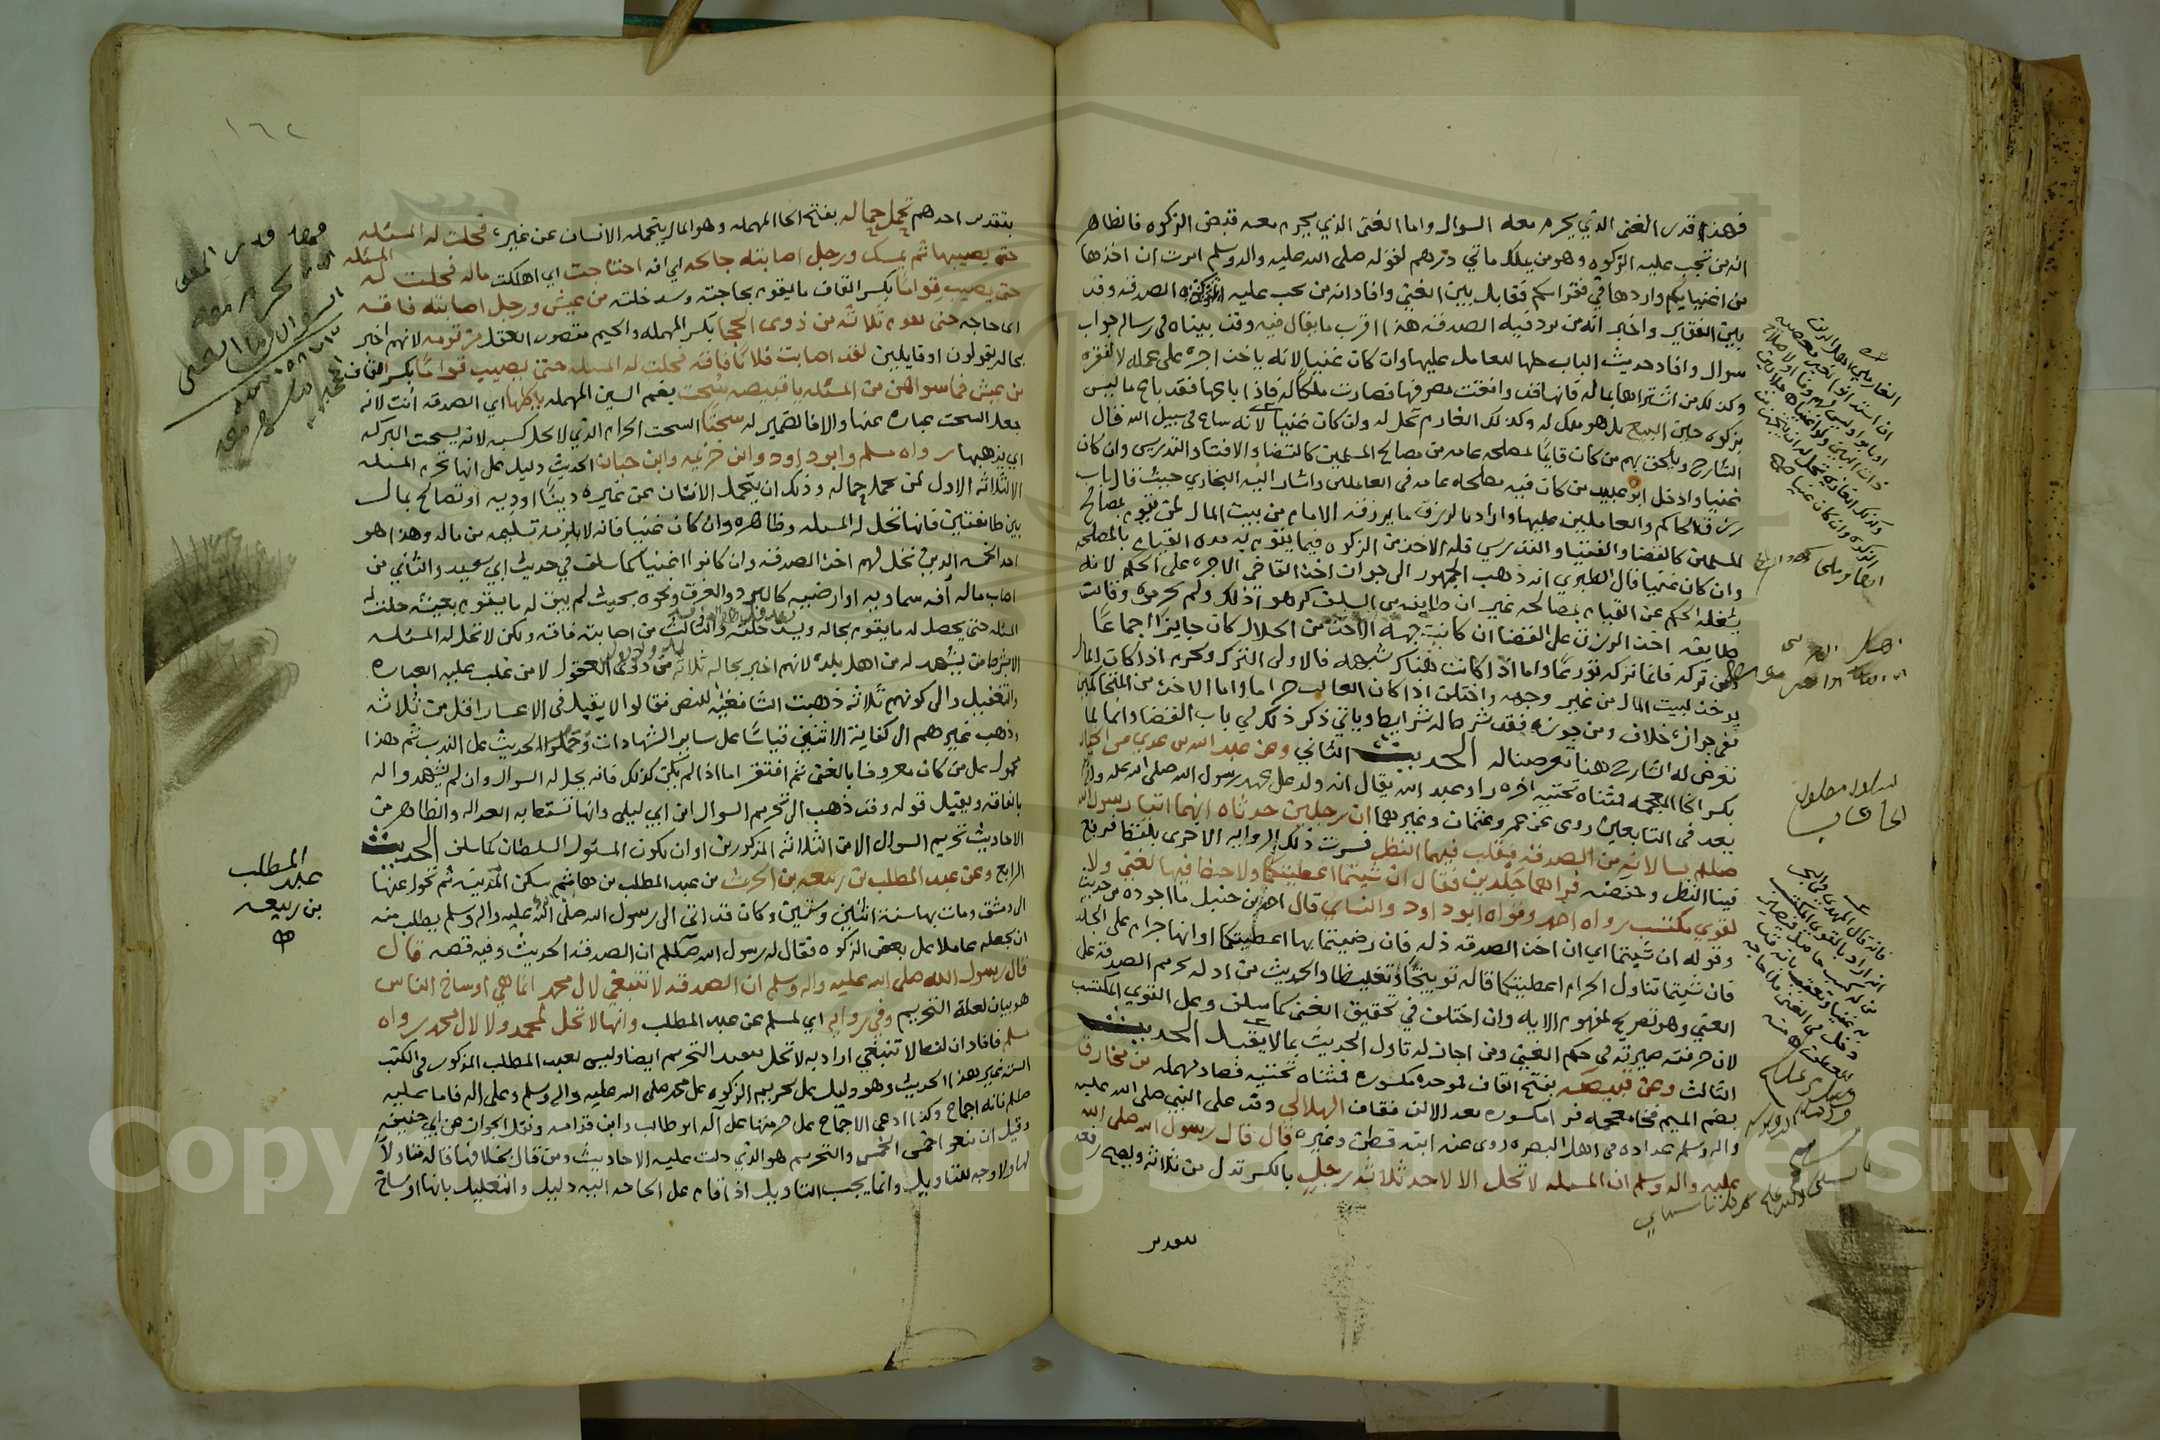 فهذا قدر الغنى الذي يحرم معه السوال واما الغنى الذي يحرم معه قبض الزكوه فالظاهر
انه من تجب عليه الزكوه وهو من يملك ماتي درهم لقوله صلى الله عليه واله وسلم امرت ان اخذها
من اغنيايكم واردها في فقرايكم فقابل بين الغني وافاد انه من تجب عليه الصدقه وقد
بين الفقير واخبر انه من ترد فيه الصدقه هذا اقرب ما يقال فيه وقد بيناه في رساله جواب
سوال وافاد حديث الباب حلها للعامل عليها وان كان غنيا لانه ياخذ اجره على عمله لا لفقره
وكذلك من اشتراها بماله فانها قد وافقت مصرفها وصارت ملكا له فاذا باعها فقد باع ما ليس
بزكوه حين البيع بل هو ملك له وكذلك الغارم تحل له وان كان غنيا لانه ساع في سبيل الله قال
الشارح ويلحق بهم من كان قايما لمصلحه عامه من مصالح المسلمين كالقضا والافتا والتدريس وان كان
غنيا وادخل ابو عبيد من كان فيه مصلحه عامه في العاملين واشار اليه البخاري حيث قال باب
رزق الحاكم والعاملين عليها واراد بالرزق ما يرزقه الامام من بيت المال لمن يقوم بمصالح
المسلمين كالقضا والفتيا والتدريس فله الاخذ من الزكوه فيما يقوم به مده القيام بالمصلحه
وان كان غنيا قال الطبري انه ذهب الجمهور الى جواز اخذ القاضي الاجره على الحكم لانه
يشغله الحكم عن القيام بمصالحه غير ان طايفه من السلف كرهوا ذلك ولم يحرموه وقالت
طايفه اخذ الرزق على القضا ان كانت جهة الاخذ من الحلال كان جايزا اجماعا
ومن تركه فانما تركه تورعا واما اذا كانت هناك شبهه فالاولى الترك ويحرم اذا كان المال
يوخذ لبيت المال من غير وجهه واختلف اذا كان الغالب حراما واما الاخذ من المتحاكمين
ففي جوازه خلاف ومن جوزه فقد شرط له شرايط وياتي ذكر ذلك في باب القضا وانما لما
تعرض له الشارح هنا تعرضنا له الحديث الثاني وعن عبد الله بن عدي بن الخيار
بكسر الخا المعجمه فمثناه تحتيه اخره را وعبد الله يقال انه ولد على عهد رسول الله صلى الله عليه واله
يعد في التابعين روى عن عمر وعثمان وغيرهما ان رجلين حدثاه انهما اتيا رسول الله
صللم يسالانه من الصدقه فقلب فيهما النظر فسرت ذلك الروايه الاخرى بلفظ فرفع
فينا النظر وخفضه فراهما جلدين فقال ان شيتما اعطيتكما ولا حظ فيها لغني ولا
لقوي مكتسب رواه احمد وقواه ابو داود والنساي قال احمد بن حنبل ما اجوده من حديث
وقوله ان شيتما اي ان اخذ الصدقه ذله فان رضيتما بها اعطيتكما او انها حرام على الجلد
فان شيتما تناول الحرام اعطيتكما قاله توبيخا وتغليظا والحديث من ادله تحريم الصدقه على
الغني وهو تصريح لمفهوم الايه وان اختلف في تحقيق الغنى كما سلف وعلى القوي المكتسب
لان حرفته صيرته في حكم الغني ومن اجاز له تاول الحديث بما لا يقبل الحديث
الثالث وعن قبيصه بفتح القاف فموحده مكسوره فمثناه تحتيه فصاد مهمله بن مخارق
بضم الميم فخا معجمه فرا مكسوره بعد الالف فقاف الهلالي وفد على النبي صلى الله عليه
واله وسلم عداده في اهل البصره روى عنه ابنه قطن وغيره قال قال رسول الله صلى الله
عليه واله وسلم ان المسله لا تحل الا لاحد ثلاثه رجل بالكسر بدل من ثلاثه ويصح رفعه
بتقدير
١٦٢
بتقدير احدهم تحمل حماله بفتح الحا المهمله وهو المال يتحمله الانسان عن غيره فحلت له المسئله
حتى يصيبها ثم يمسك ورجل اصابته جايحه اي افه اجتاحت اي اهلكت ماله فحلت له المسئله
حتى يصيب قواما بكسر القاف ما يقوم بحاجته وسد خلته من عيش ورجل اصابته فاقه
اي حاجه حتى يقوم ثلاثه من ذوي الحجا بكسر المهمله والجيم مقصور العقل من قومه لانهم اخبر
بحاله يقولون او قايلين لقد اصابت فلانا فاقه فحلت له المسئله حتى يصيب قواما بكسر القاف
من عيش فما سواهن من المسئله يا قبيصه سحت بضم السين المهمله ياكلها اي الصدقه انث لانه
جعل السحت عباره عنها والا فالضمير له سحتا السحت الحرام الذي لا يحل كسبه لانه يسحت البركه
اي يذهبها رواه مسلم وابو داود وابن خزيمه وابن حبان الحديث دليل على انها تحرم المسئله
الا لثلاثه الاول لمن تحمل حماله وذلك ان يتحمل الانسان عن غيره دينا او ديه او تصالح بمال
بين طايفتين فانها تحل له المسله وظاهره وان كان غنيا فانه لا يلزمه تسليمه من ماله وهذا هو
احد الخمسه الذين تحل لهم اخذ الصدقه وان كانوا اغنيا كما سلف في حديث ابي سعيد والثاني من
اصاب ماله آفه سماويه او ارضيه كالبرد والغرق ونحوه بحيث لم يبق له ما يقوم بعيشه حلت له
المسئله حتى يحصل له ما يقوم بحاله ويسد خلته والثالث من اصابته فاقه ولكن لا تحل له المسئله
الا بشرط ان يشهد له من اهل بلده لانهم اخبر بحاله ثلاثه من ذوي العقول لا من غلب عليه الغباوه
والتغفيل والى كونهم ثلاثه ذهبت الشافعيه للنص فقالوا لا يقبل في الاعسار اقل من ثلاثه
وذهب غيرهم الى كفاية الاثنين قياسا على ساير الشهادات وحملوا الحديث على الندب ثم هذا
محمول على من كان معروفا بالغنى ثم افتقر اما اذا لم يكن كذلك فانه يحل له السوال وان لم يشهدوا له
بالفاقه ويقبل قوله وقد ذهب الى تحريم السوال ابن ابي ليلى وانها تسقط به العداله والظاهر من
الاحاديث تحريم السوال الا من الثلاثه المذكورين او ان يكون المسئول السلطان كما سلف الحديث
الرابع وعن عبد المطلب بن ربيعه بن الحرث بن عبد المطلب بن هاشم سكن المدينه ثم تحول عنها
الى دمشق ومات بها سنة اثنتين وستين وكان قد اتى الى رسول الله صلى الله عليه واله وسلم يطلب منه
ان يجعله عاملا على بعض الزكوه فقال له رسول الله صللم ان الصدقه الحديث وفيه قصه قال
قال رسول الله صلى الله عليه واله وسلم ان الصدقه لا تنبغي لال محمد انما هي اوساخ الناس
هو بيان لعلة التحريم وفي روايه اي لمسلم عن عبد المطلب وانها لا تحل لمحمد ولا لال محمد رواه
مسلم فافاد ان لفظ لا تنبغي اراد به لا تحل فيفيد التحريم ايضا وليس لعبد المطلب المذكور في الكتب
السته غير هذا الحديث وهو دليل على تحريم الزكوه على محمد صلى الله عليه واله وسلم وعلى اله فاما عليه
صللم فانه اجماع وكذا ادعى الاجماع على حرمتها على آله ابو طالب وابن قدامه ونقل الجواز عن ابي حنيفه
وقيل ان منعوا خمس الخمس والتحريم هو الذي دلت عليه الاحاديث ومن قال بخلافها قاله متاولا
لها ولا وجه للتاويل وانما يجب التاويل اذا قام على الحاجه اليه دليل والتعليل بانها اوساخ
عبد المطلب
بن ربيعه
Copyright © King Saud University